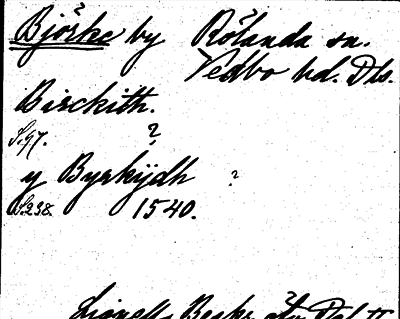 Björke by Rölanda sn.
Vedbo hd. Dls.
Birckith.
S. 97. ?
y Byrkijdh ?
S. 238. 1540.
Lignell, Beskr.